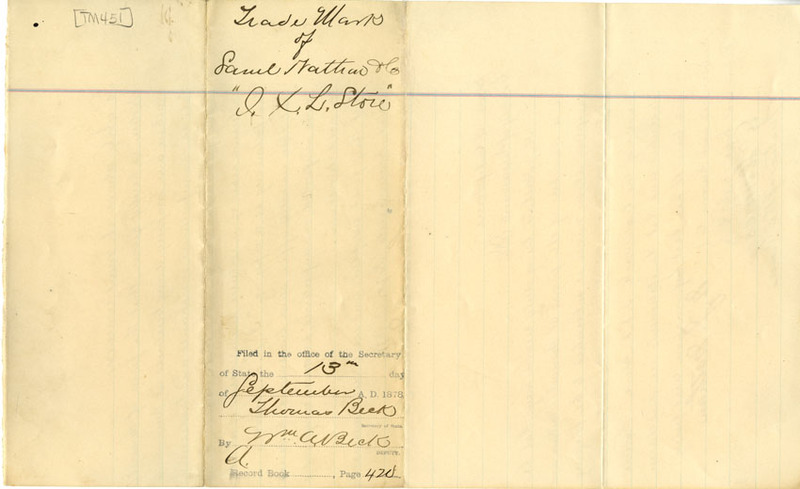 [TM451]
Trade Mark
of
Saml Nathan & Co
"I. X. L. Store"
Filed in the office of the Secretary
of State the 13th day
of September A. D. 1878
Thomas Beck
Secretary of State
By Wm. A. Beck
DEPUTY.
A.
Record Book , Page 428